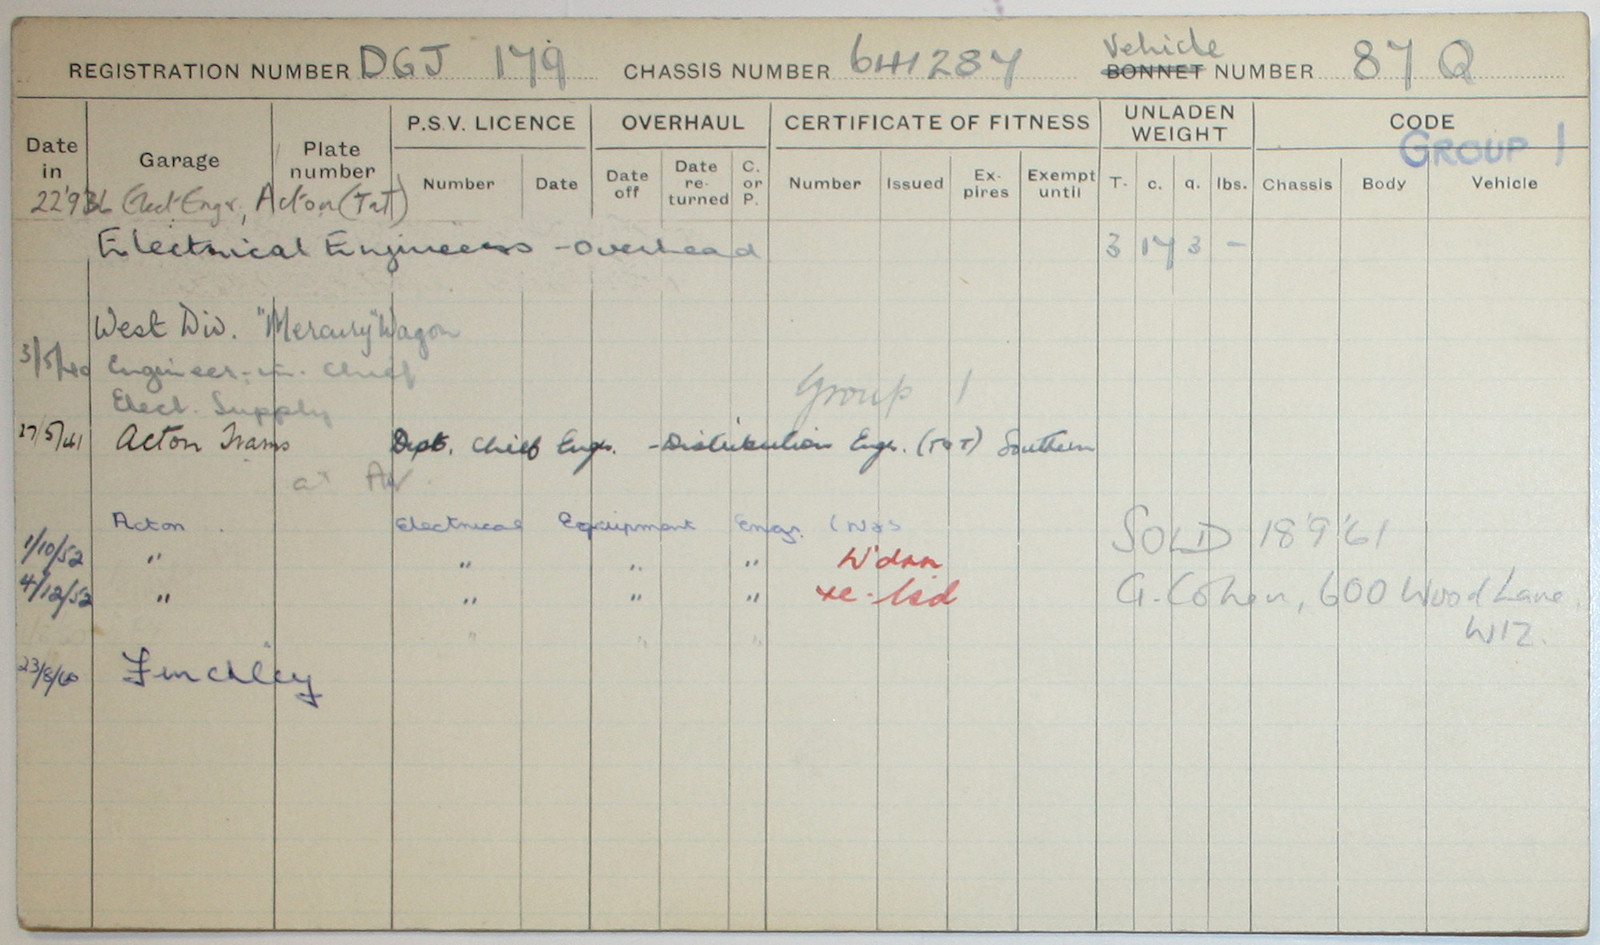 REGISTRATION NUMBER DGJ 179 CHASSIS NUMBER 6H1287 Vehicle BONNET NUMBER 87 Q
Date in Garage Plate number P.S.V. LICENCE OVERHAUL CERTIFICATE OF FITNESS UNLADEN WEIGHT CODE
GROUP 1
Number Date Date off Date re-turned C. or P. Number Issued Ex-pires Exempt until T. c. q. lbs. Chassis Body Vehicle
22'9 36 Elect Engr, Acton (T&T)
Electrical Engineers - Overhead 3 17 3 -
West Div. "Mercury" Wagon
3/5/40 Engineer-in-Chief
Elect. Supply Group 1
27/5/41 Acton Trams Dept. Chief Engr. - Distribution Engr. (T&T) Southern
at AW.
Acton. Electrical Equipment Engr.
SOLD 18'9'61
1/10/52 " " " " W'dnn
4/12/52 " " " " re-lsd
G. Cohen, 600 Wood Lane
W12.
" " "
23/8/60 Finchley